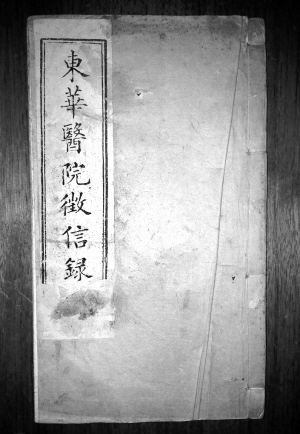 東華醫院徵信録